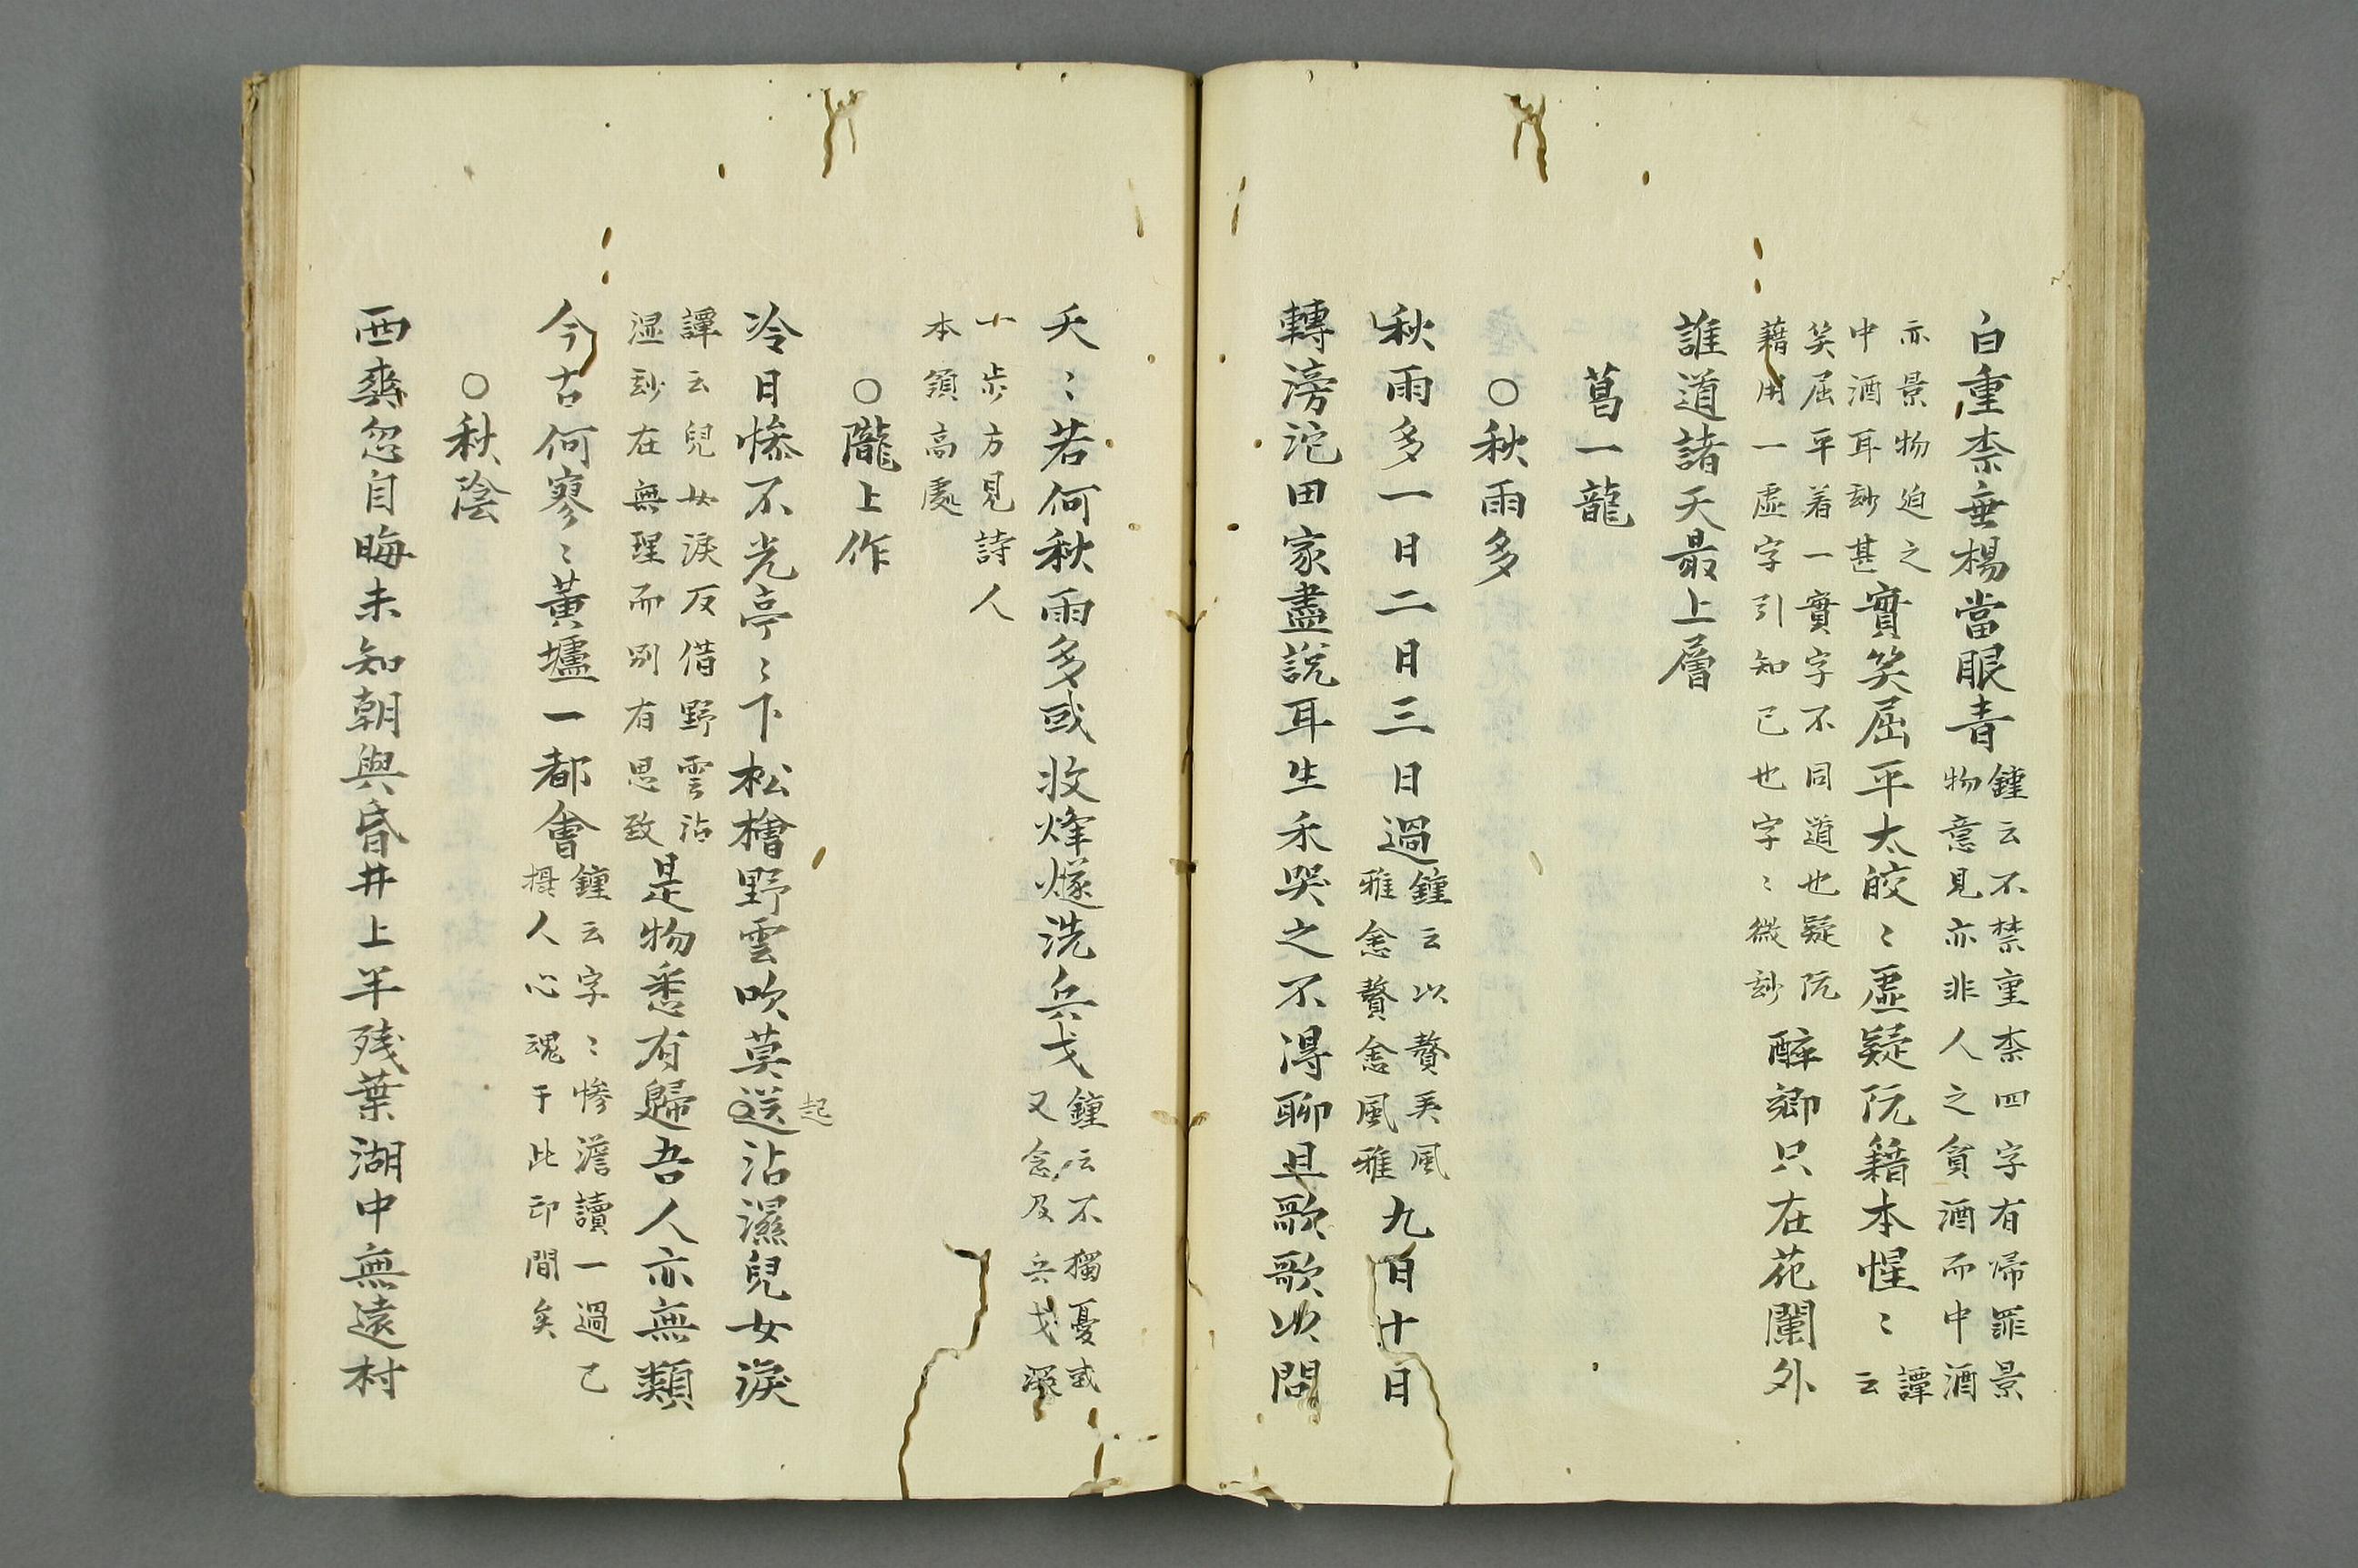 白重柰垂楊當眼青
鍾云不禁重柰四字有歸罪景
物意見亦非人之貪酒而中酒
亦景物迫之
中酒耳玅甚
實笑屈平太皎〻虛疑阮籍本惺〻
譚
云
笑屈平着一實字不同道也疑阮
藉用一虛字引知己也字〻微玅
醉鄉只在花闌外
誰道諸天最上層
葛一龍
○秋雨多
秋雨多一日二日三日過
鍾云以贅美風
雅畲贅畲風雅
九月十日
轉滂沱田家盡說耳生禾哭之不得聊且歌歌以問
天〻若何秋雨多或收烽燧洗兵戈
鍾云不獨憂或
又念及兵戈深
一步方見詩人
本領高處
○隴上作
冷日慘不光亭〻下松檜野雲吹莫送沾濕兒女淚
起
譚云兒女淚反借野雲沾
湿玅在無理而別有思致
是物悉有歸吾人亦無類
今古何寥〻黃壚一都會
鍾云字〻慘澹讀一過己
攝人心魂于此印間矣
○秋陰
西爽忽自晦未知朝與昏井上半残葉湖中無遠村